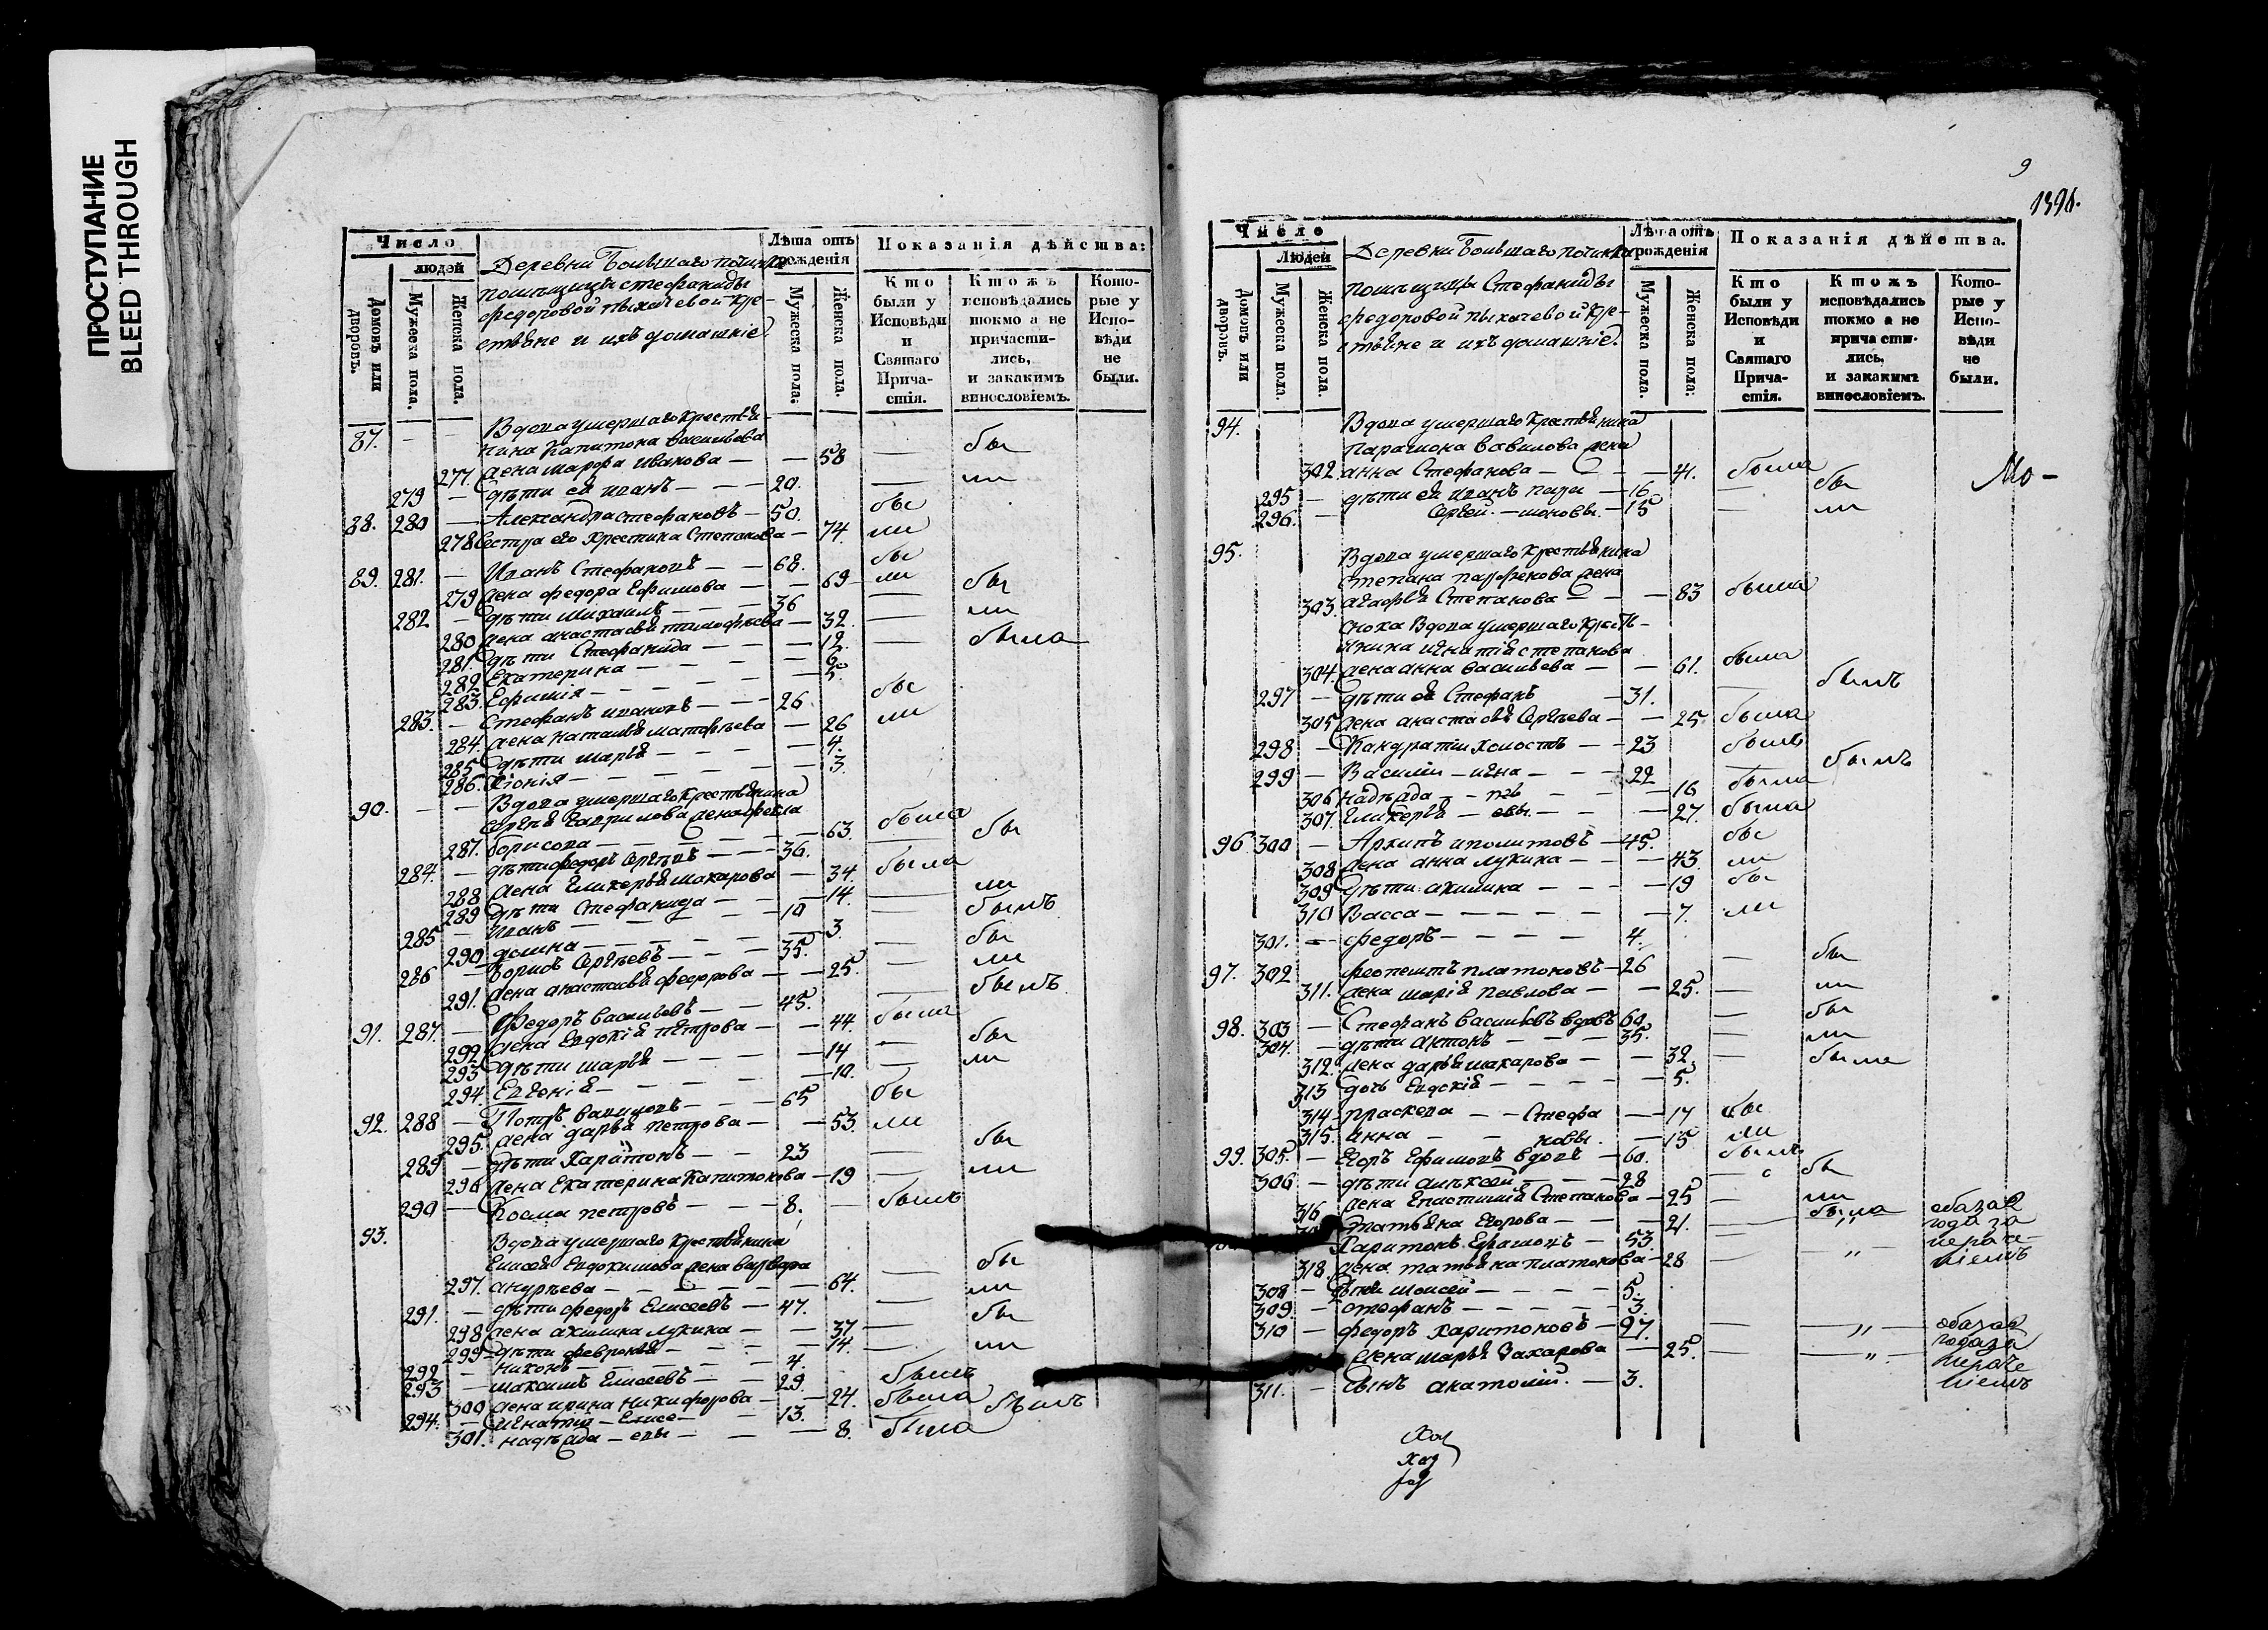 ПРОСТУПАНИЕ
BLEED THROUGH
Число
людей
Домовъ или дворовъ.
Мужеска пола.
Женска пола.
Деревни Большаго починка
помѣщицы Стефаниды
Федоровой Пыхачевой кре-
стьяне и ихъ домашніе.
Лѣта отъ рожденія
Мужеска пола.
Женска пола.
Показанія дѣйства:
Кто были у Исповѣди и Святаго Прича-стія.
Кто жъ исповѣдались токмо а не причасти-лись, и закакимъ винословіемъ.
Кото-рые у Испо-вѣди не были.
87. — — Вдова умершаго крестья-
нина Капитона Васильева
277. жена Марфа Иванова — — 58 — бы
279 — дѣти ея Иванъ — — — 20. — ли
88. 280 — Александра Стефановъ — 50. бы
278 Сестра его Христина Степанова — 74. ли
89. 281. — Иванъ Стефановъ — — 68. бы
279 жена Федора Ефимова — — 69 ли
282 — дѣти Михаилъ — — — 36 — бы
280 жена Анастасья Тимофѣева — 32. — ли
281. дѣти Стефанида — — — 12. — была
282 Екатерина — — — — 6.
283. Ефимія — — — — 5.
283. — Стефанъ Ивановъ — — 26 бы
284. жена Наталья Матфѣева — 26 ли
285 дѣти Марья — — — — 4.
286. Хіонія — — — — 3.
90. — — Вдова умершаго крестьянина
Сергѣя Гаврилова жена Фекла
287. Борисова — — — — 63. была
284. — дѣти Федоръ Сергѣевъ — — 36. — бы
288 жена Гликерья Макарова — 34. была
289 дѣти Стефанида — — — 14. — ли
285 — Иванъ — — — — 10 — былъ
290 Домна — — — — 3.
286 — Борисъ Сергѣевъ — — 35. — бы
291. жена Анастасья Федорова — — 25. — ли
91. 287. — Федоръ Васильевъ — — 45. — былъ
292 жена Евдокія Петрова — — 44. была
293 дѣти Марья — — — — 14 — бы
294. Евгенія — — — — 10. — ли
92. 288 — Петръ — — 65 бы
295. жена Дарья Петрова — — 53. ли
289 — дѣти Харитонъ — — 23 — бы
296 жена Екатерина Капитонова — 19 — ли
290 — Косма Петровъ — — — 8. — былъ
93. Вдова умершаго крестьянина
Елисея Евдокимова жена Варвара
297. Андрѣева — — — — 64. — бы
291. — дѣти Федоръ Елисеевъ — 47. — ли
298 жена Акилина Лукина — — 37 — бы
299 дѣти Февронья — — — 14. — ли
292 — Никонъ — — — — 4.
293 — Максимъ Елисеевъ — — 29. былъ
300 жена Ирина Никифорова — — 24. была
294. — Игнатій — Елисе — — 13. былъ
301. Надѣжда — евы — — — 8. была
9
1390.
Число
Людей
Домовъ или дворовъ.
Мужеска пола.
Женска пола.
Деревни Большаго починка
помѣщицы Стефаниды
Федоровой Пыхачевой кре-
стьяне и ихъ домашніе.
Лѣта отъ рожденія
Мужеска пола.
Женска пола:
Показанія дѣйства.
Кто были у Исповѣди и Святаго Прича-стія.
Кто жъ исповѣдались токмо а не прича сти-лись, и закакимъ винословіемъ.
Кото-рые у Испо-вѣди не были.
94. Вдова умершаго крестьянина
Парамона Вавилова жена
302. Анна Стефанова — — — 41. была
Мо-
295 — дѣти ея Иванъ Пара — 16. — бы
296. — Сергей. — моновы. — 15 — ли
95. Вдова умершаго крестьянина
Степана Парфенова жена
303. Агафья Степанова — — — 83 была
Сноха Вдова умершаго кресть-
янина Игнатія Степанова
304. жена Анна Васильева — — 61. была
297 — дѣти ея Стефанъ — 31. — былъ
305 жена Анастасья Сергѣева — — 25 была
298 — Кандратіи холостъ — — 23 былъ
299 — Василіи — Игна — — — 22 — былъ
306 Надѣжда — — ть — — — 16 была
307. Гликерья — евы. — — — 27. была
96 300 — Архипъ Иполитовъ — 45. бы
308 жена Анна Лукина — — — 43 ли
309 дѣти Акилина — — — — 19 бы
310 Васса — — — — — 7. ли
301. — Федоръ — — — — 4.
97. 302 Феопемптъ Платоновъ — 26 — бы
311. жена Марія Павлова — — 25. — ли
98. 303 — Стефанъ Васильевъ вдовъ 60. — бы
304. — дѣти Антонъ — — — 35. — ли
312. жена Дарья Макарова — — 32. — была
313 дочь Евдокія — — — — 5.
314. Праскева — — Стефа — 17 бы
315. Анна — — новы. — 15 ли
99. 305. — Егоръ Ефимовъ вдовъ — 60. былъ
306 — дѣти Алѣксей — — 28 — бы
316 жена Епистимія Степанова — 25 — ли
Татьяна Егорова — — — 21. — была
Харитонъ Ефимовъ — 53. — „ обагода за нераченіемъ
318. жена Татьяна Платонова — 28 — „
308 — дѣти Моисей — — — — 5.
309 — Стефанъ — — — — — 3.
310 — Федоръ Харитоновъ — 27. — — „ — обагода за нераче
жена Марья Захарова — 25. — — „ — ніемъ
311. — Сынъ Анатолій. — 3.